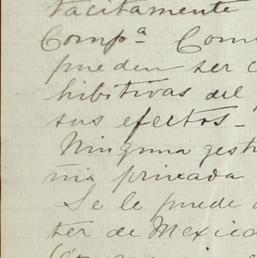 tacitamente
Compª Com
pueden ser c
hibitivas del
sus efectos-
Ninguna gest
nia privada
Se le puede
ter de Mexico